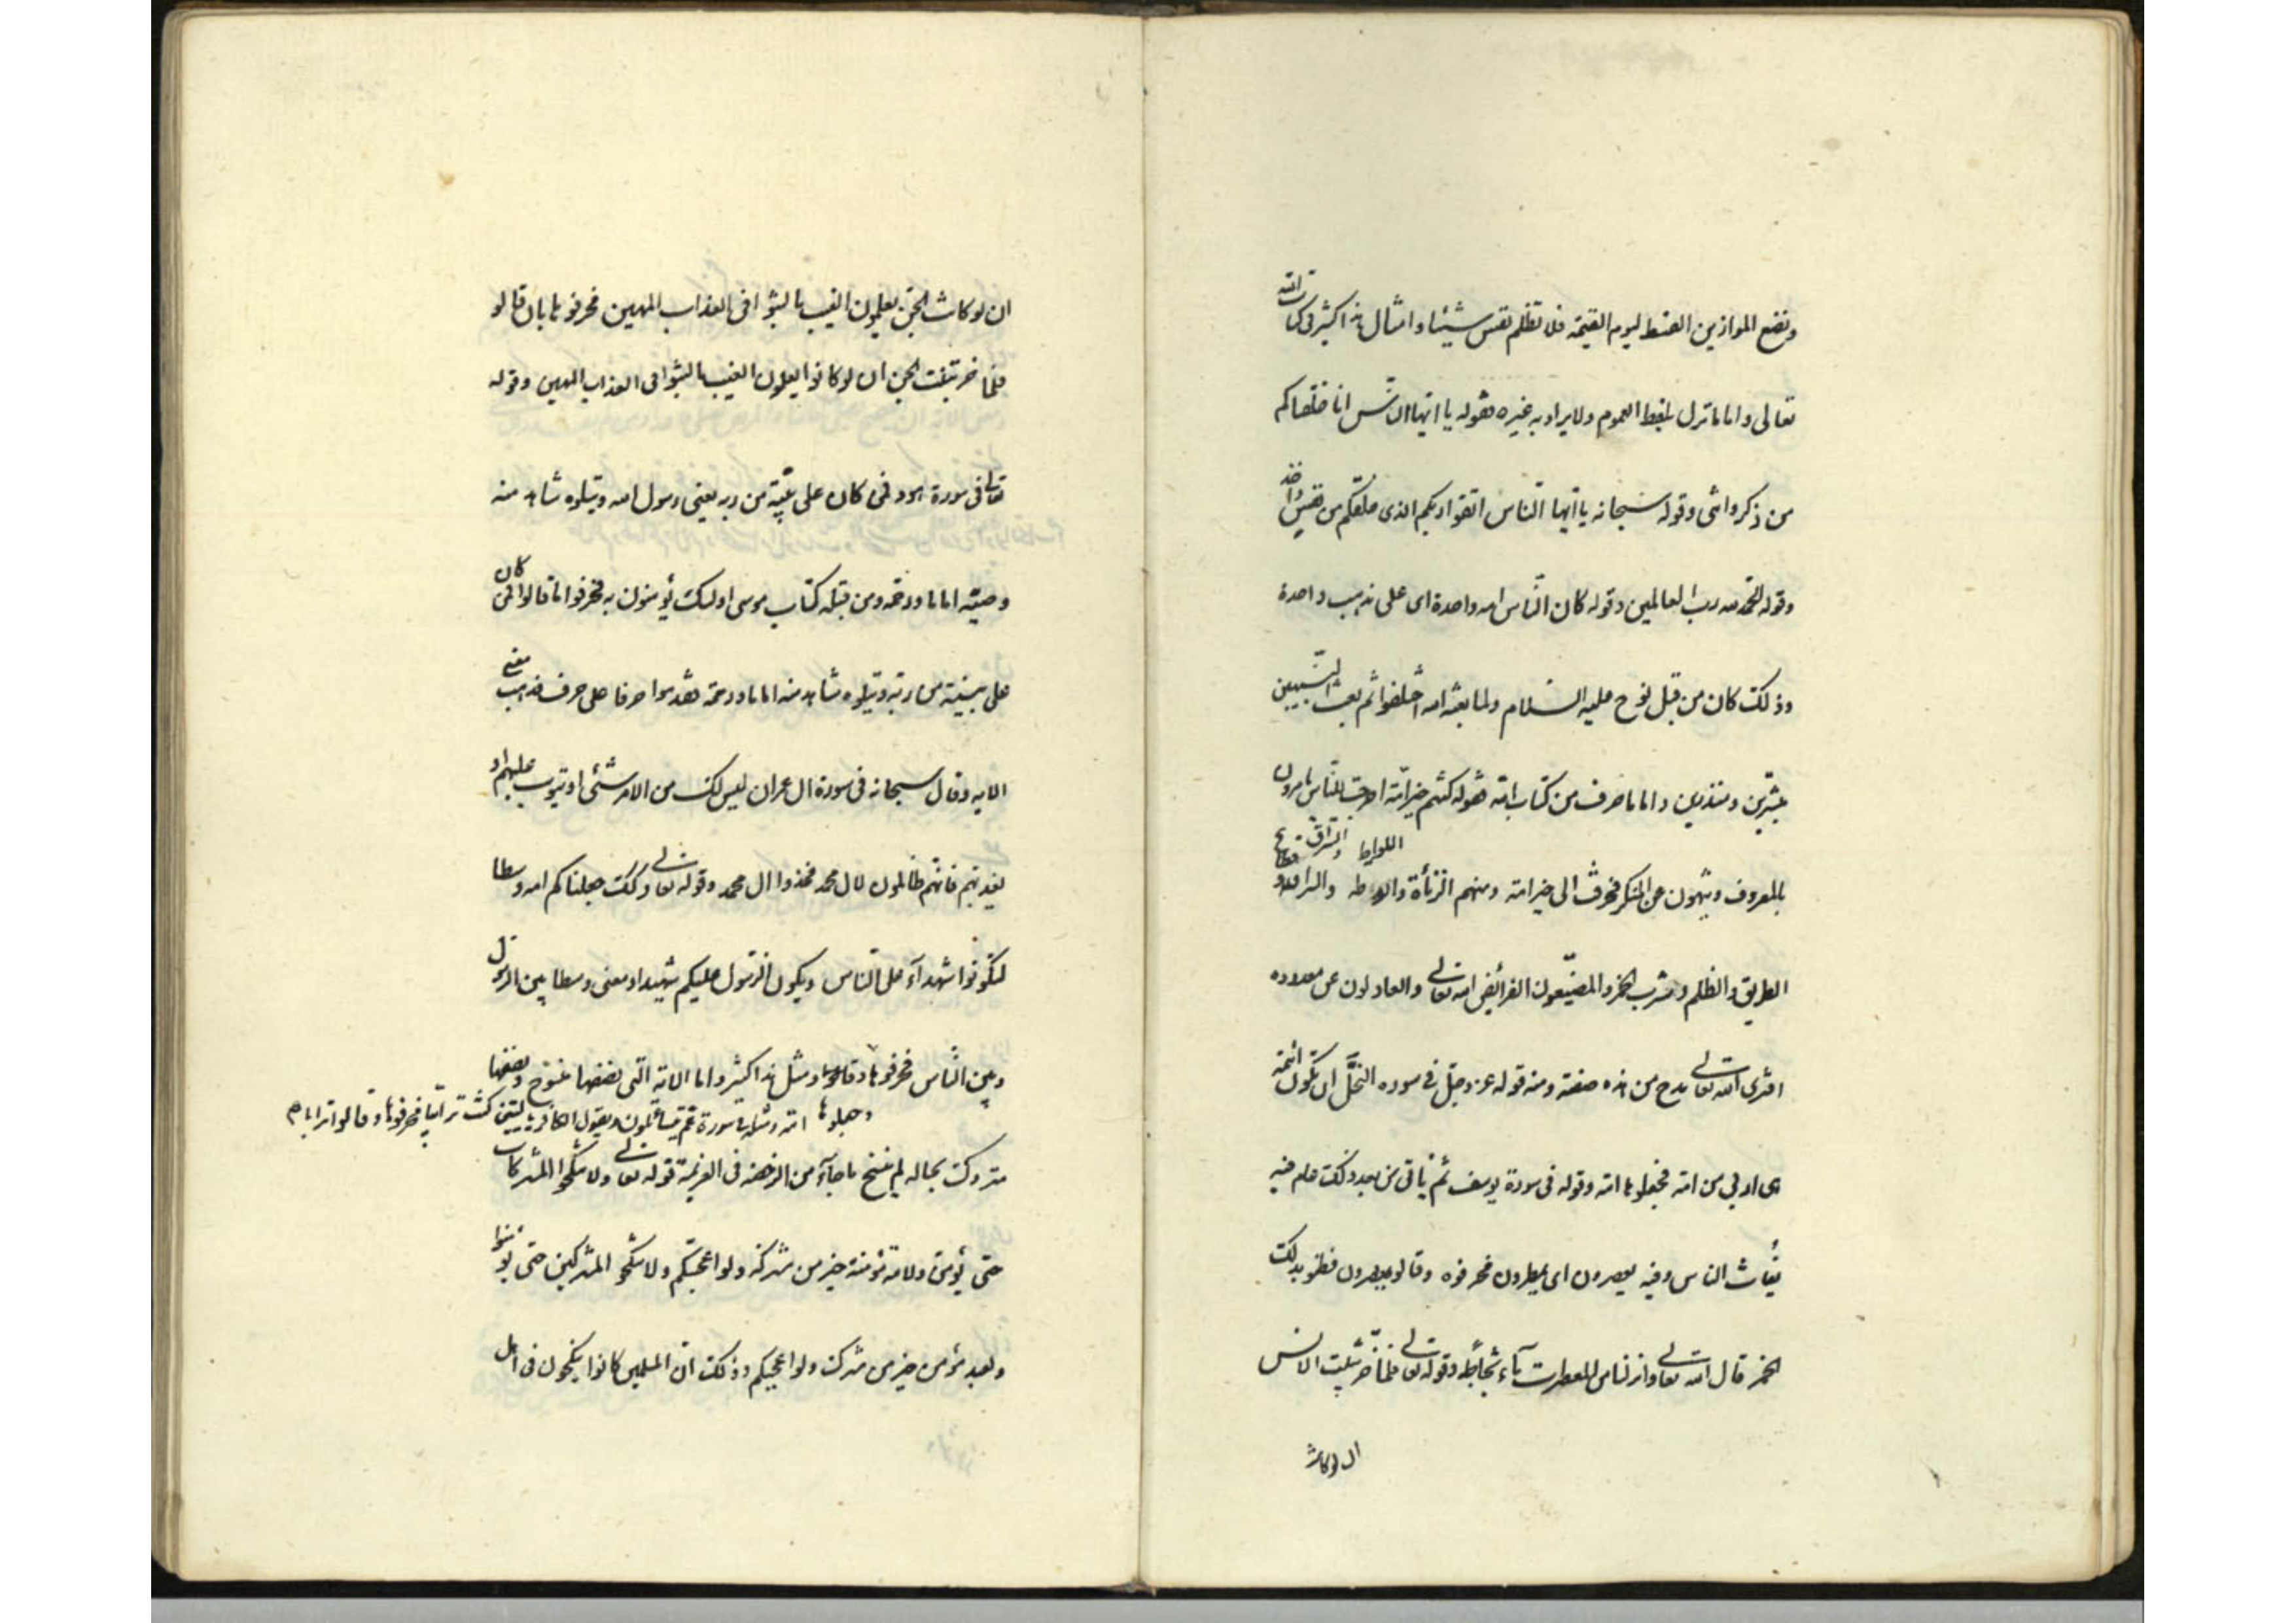 ونضع الموازين القسط ليوم القيمة فلا تظلم نفس شيئا وامثال هذا كثير فى كتاب الله
تعالى واما ما نزل بلفظ العموم ولا يراد به غيره فقوله يا ايها الناس انا خلقناكم
من ذكر وانثى وقوله سبحانه يا ايها الناس اتقوا ربكم الذى خلقكم من نفس واحدة
وقوله الحمد لله رب العالمين وقوله كان الناس امه واحدة اى على مذهب واحدة
وذلك كان من قبل نوح عليه السلام ولما بعثه الله اختلفوا ثم بعث النبيين
مبشرين ومنذرين واما ما حرف من كتاب الله فقوله كنتم خير ائمة اخرجت للناس تامرون
اللواط والسراق قطاع
بالمعروف وينهون عن المنكر فحرفت الى خير امة ومنهم الزناة والاطه والسراق و
الطريق والظلم وشرب الخمر والمضيعون الفرائض الله تعالى والعادلون عن حدوده
افترى الله تعالى مدح من هذه صفته ومنه قوله عز وجل فى سوره النحل ان تكون ائمة
هى اربى من امة فجعلوها امة وقوله فى سورة يوسف ثم ياتى من بعد ذلك عام فيه
يغاث الناس وفيه يعصرون اى يمطرون فحرفوه وقالو يعصرون فظنو بذلك
الخمر قال الله تعالى وانزلنا من المعصرات ماء ثجاجا وقوله تعالى فلما خر تبينت الانس
ان لو كانت
ان لو كانت الجن يعلمون الغيب ما لبثوا فى العذاب المهين فحرفوها بان قالو
فلما خر تبينت الجن ان لو كانوا يعلمون الغيب ما لبثوا فى العذاب المهين وقوله
تعالى فى سورة هود فمن كان على بينة من ربه يعنى رسول الله ويتلوه شاهد منه
وصيه اماما ورحمة ومن قبله كتاب موسى اولئك يؤمنون به فحرفوا ما قالوا فمن كان
على بينة من ربه ويتلوه شاهد منه اماما ورحمة فقدموا حرفا على حرف فذهب معنى
الايه وقال سبحانه فى سورة ال عمران ليس لك من الامر شئ او يتوب عليهم او
يعذبهم فانهم ظالمون لال محمد فحذفوا ال محمد وقوله تعالى وكذلك جعلناكم امه وسطا
لتكونوا شهداء على الناس ويكون الرسول عليكم شهيدا ومعنى وسطا بين الرسول
وبين الناس فحرفوها وقالوا ومثل هذا كثير واما الاية التى بعضها منسوخ وبعضها
وجعلوها امة ومثله فى سورة عم يتسائلون ويقول الكافر يا ليتنى كنت ترابيا فحرفوها وقالوا ترابا
متروك بحاله لم ينسخ ما جاء من الرخصة فى العزيمة قوله تعالى ولا تنكحوا المشركات
حتى يؤمن ولامة مؤمنة خير من مشركة ولو اعجبتكم ولا تنكحو المشركين حتى يؤمنوا
ولعبد مؤمن خير من مشرك ولو اعجبكم وذلك ان المسلمين كانوا ينكحون فى اهل